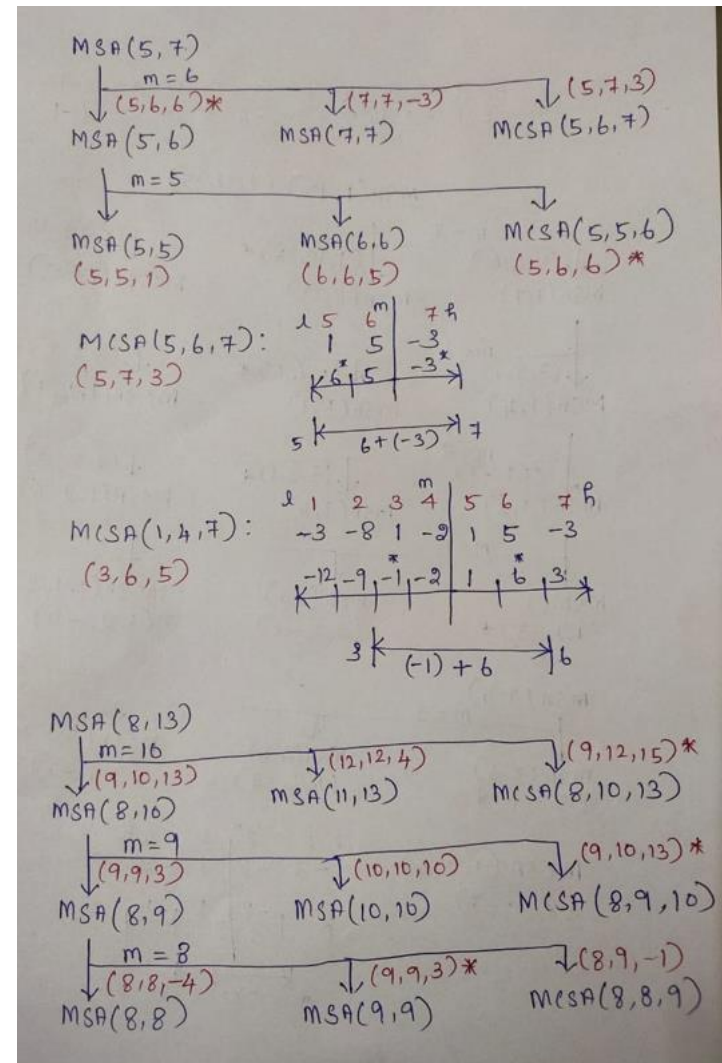 MSA(5,7)
m = 6
(5,6,6)* (7,7,-3) (5,7,3)
MSA(5,6) MSA(7,7) MCSA(5,6,7)
m = 5
MSA(5,5) MSA(6,6) MCSA(5,5,6)
(5,5,1) (6,6,5) (5,6,6)*
l 5 6 m 7 h
MCSA(5,6,7): 1 5 -3
(5,7,3) 6* 5 -3*
5 6+(-3) 7
m
l 1 2 3 4 5 6 7 h
MCSA(1,4,7): -3 -8 1 -2 1 5 -3
(3,6,5) -12 -9 -1* -2 1 6* 3
3 (-1) + 6 6
MSA(8,13)
m = 10
(9,10,13) (12,12,4) (9,12,15)*
MSA(8,10) MSA(11,13) MCSA(8,10,13)
m = 9
(9,9,3) (10,10,10) (9,10,13)*
MSA(8,9) MSA(10,10) MCSA(8,9,10)
m = 8
(8,8,-4) (9,9,3)* (8,9,-1)
MSA(8,8) MSA(9,9) MCSA(8,8,9)